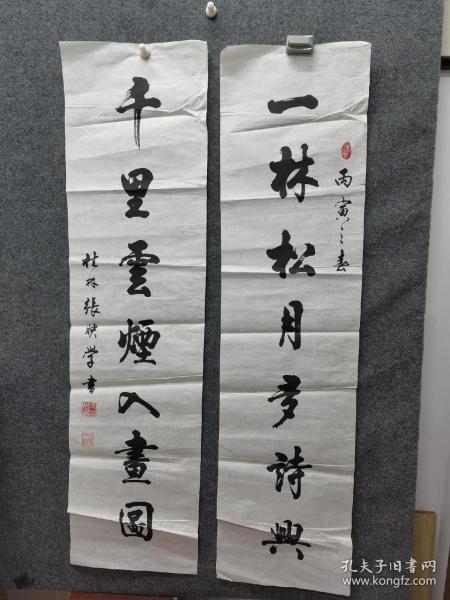 丙寅之春
一林松月多詩興
千里雲煙入畫圖
桂林張映学書
孔夫子旧书网
www.kongfz.com